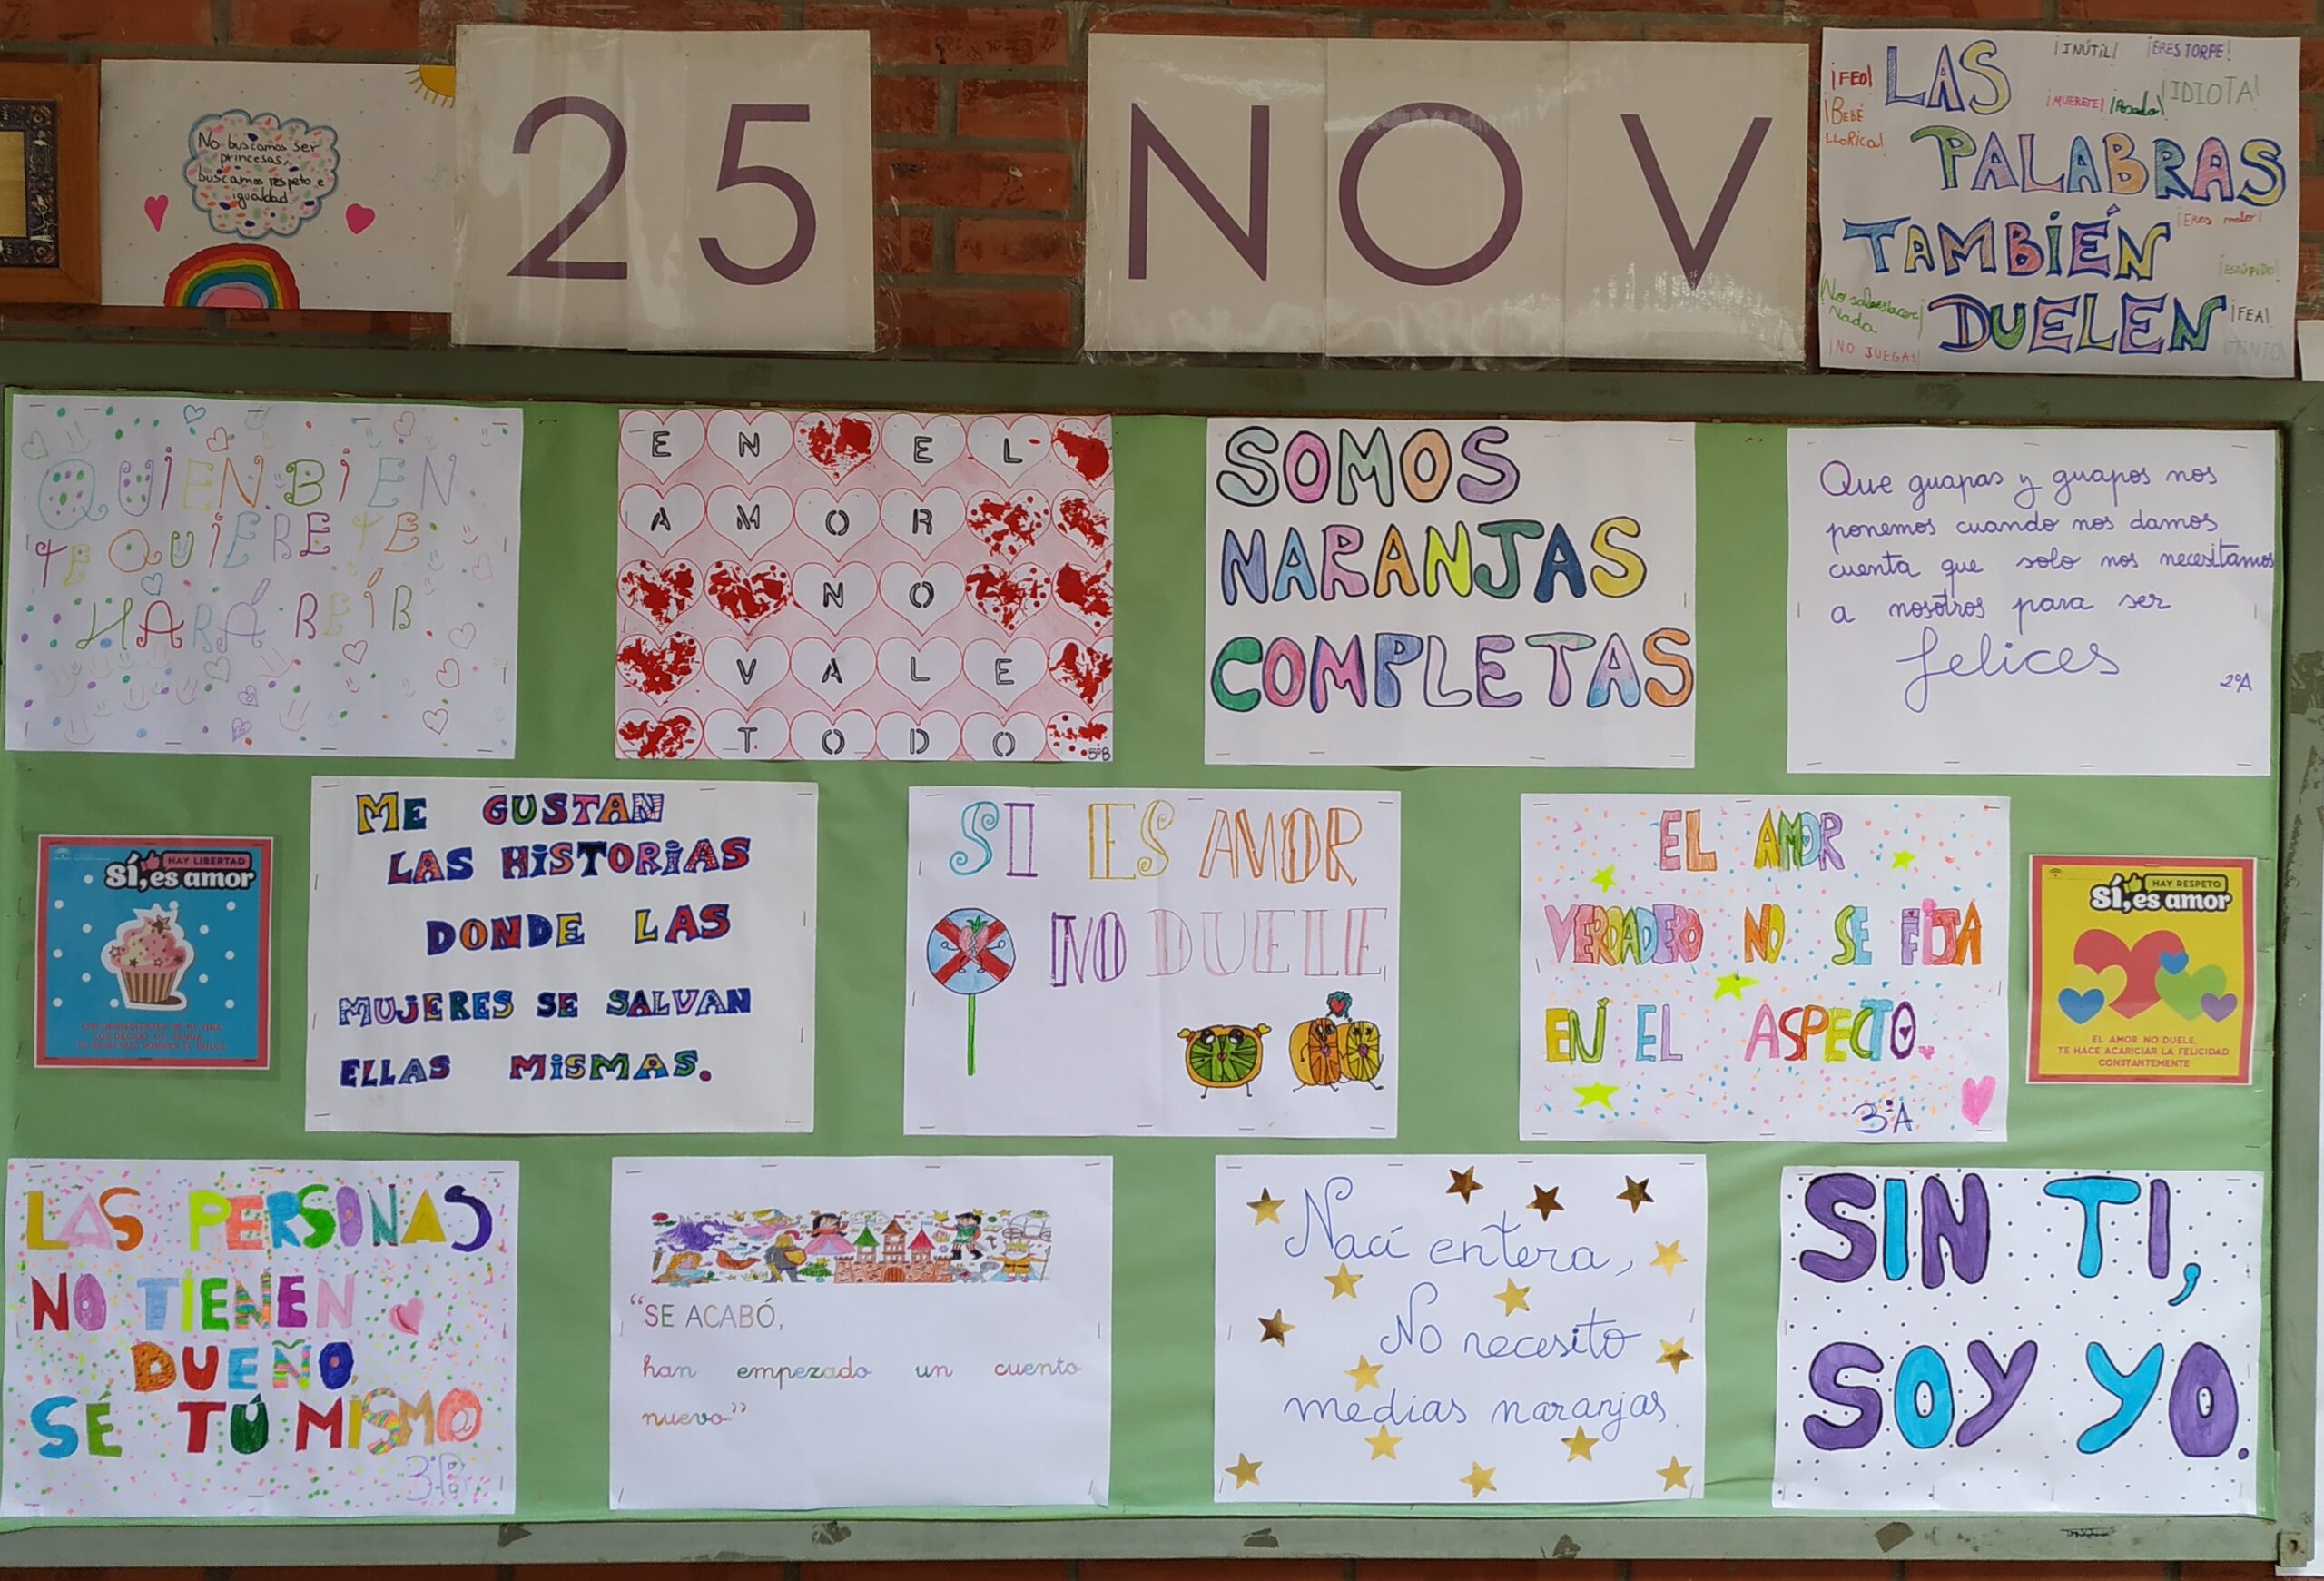 No buscamos ser
princesas,
buscamos respeto e
igualdad.
25 NOV
¡INÚTIL!
¡ERES TORPE!
¡FEO!
¡IDIOTA!
¡MUERETE!
¡BEBÉ
LLORICA!
LAS
PALABRAS
TAMBIÉN
DUELEN
¡Eres malo!
¡ESTÚPIDO!
Nada
¡FEA!
¡NO JUEGAS!
¡TONTO!
QUIEN BIEN
TE QUIERE TE
HARÁ REÍR
EN EL
AMOR
NO
VALE
TODO
5ºB
SOMOS
NARANJAS
COMPLETAS
Que guapas y guapos nos
ponemos cuando nos damos
cuenta que solo nos necesitamos
a nosotros para ser
felices
2ºA
HAY LIBERTAD
SÍ, es amor
ME GUSTAN
LAS HISTORIAS
DONDE LAS
MUJERES SE SALVAN
ELLAS MISMAS.
SI ES AMOR
NO DUELE
EL AMOR
VERDADERO NO SE FIJA
EN EL ASPECTO.
3ºA
HAY RESPETO
SÍ, es amor
EL AMOR NO DUELE,
TE HACE ACARICIAR LA FELICIDAD
CONSTANTEMENTE
LAS PERSONAS
NO TIENEN
DUEÑO
SÉ TÚ MISMO
3ºB
"SE ACABÓ,
han empezado un cuento
nuevo"
Nací entera,
No necesito
medias naranjas
SIN TI,
SOY YO.